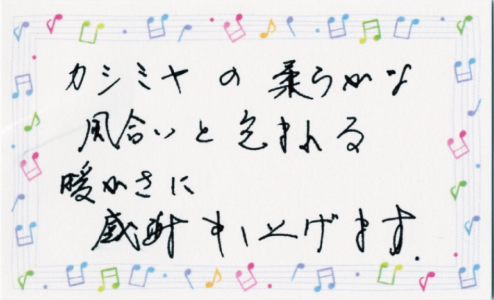 カシミヤの柔らかな
風合いと包まれる
暖かさに
感謝申し上げます.